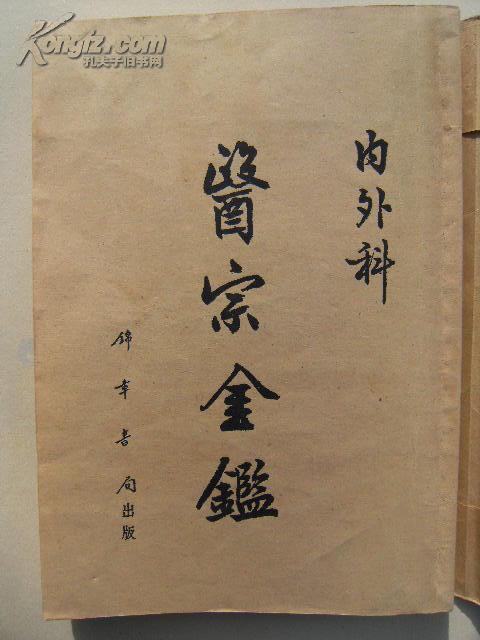 Kongfz.com
孔夫子旧书网
内外科
醫宗金鑑
錦章書局出版